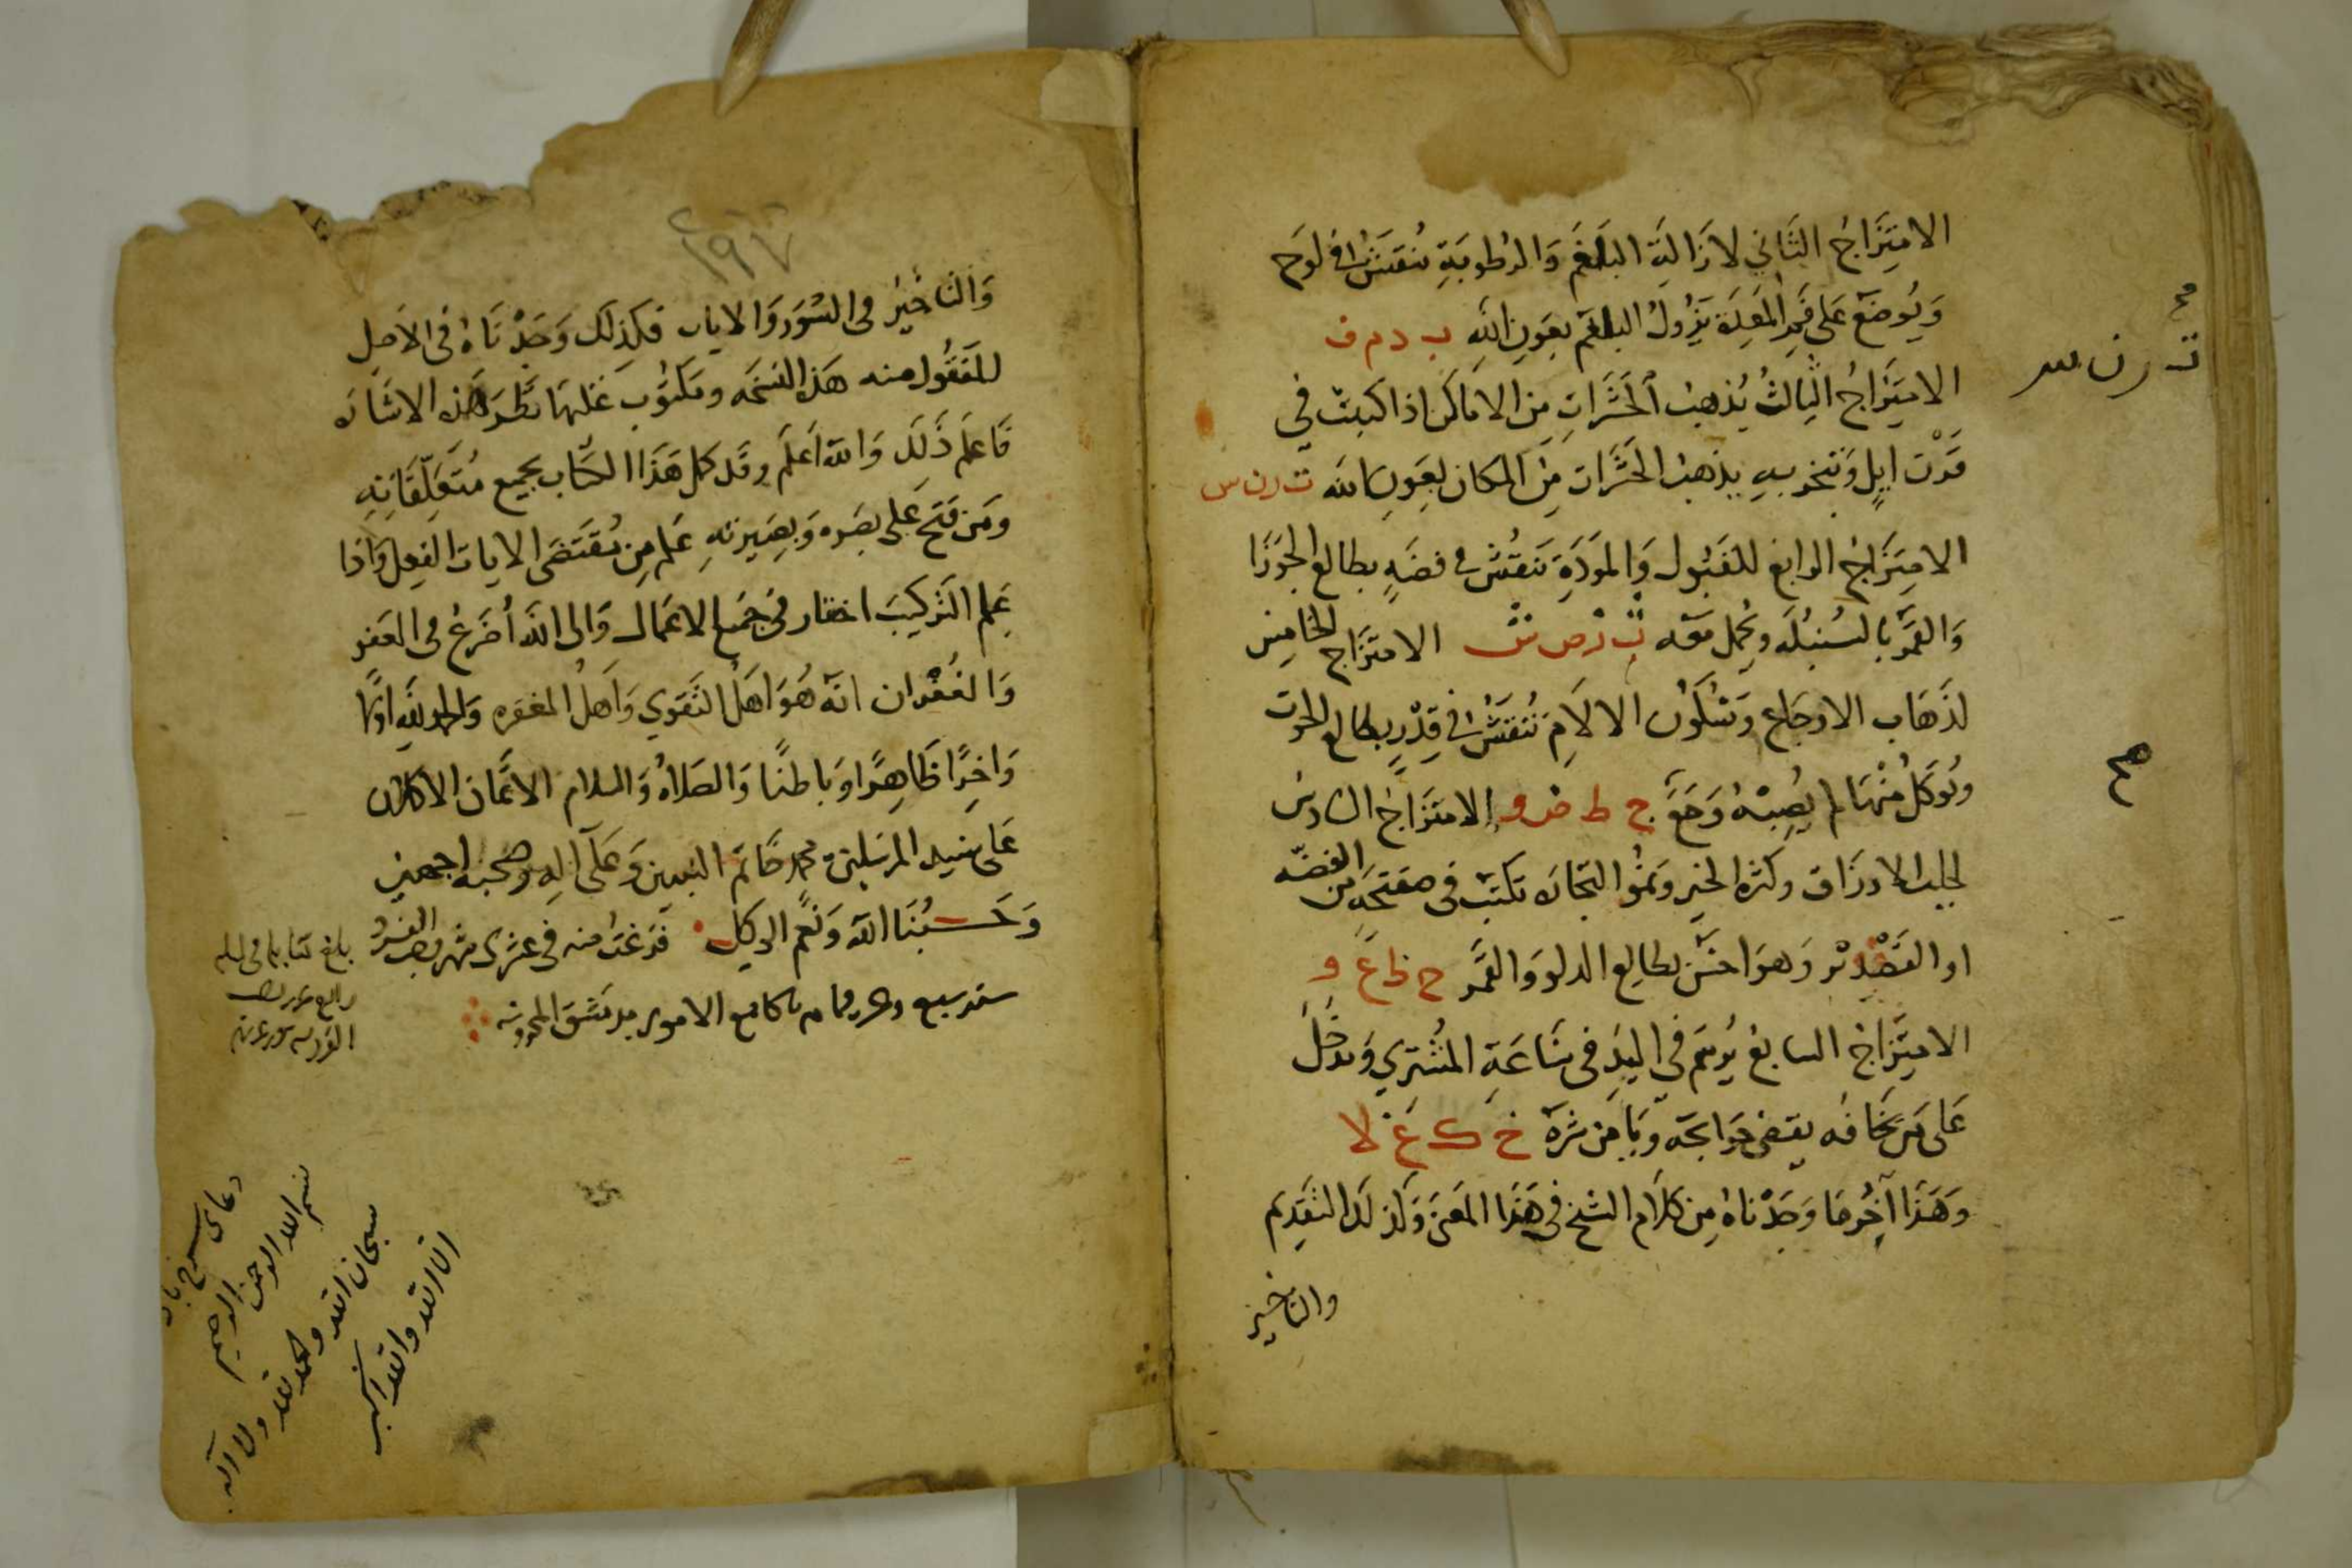 الامتِزَاجُ الثَّاني لازَالَةِ البلغَم وَالرُطوبَةِ تُنقَشُ في لَوح
وَيُوضَع عَلى فَمِ المَعِدَة يَزُولُ البلغم بِعَونِ اللهِ ب د م ف
الامتِزَاجُ الثالثُ يُذهِبُ الحَشَراتِ مِنَ الاماكن اذا كتبت في
قَرْن ايلٍ وَتبخر بهِ يذهب الحَشَرات مِنَ المكان بعَونِ الله ت ر ن س
الامتِزَاجُ الرابع للقَبُول وَالمَوَدَةِ تَنقُش في فضَةٍ بطالع الجَوزَا
وَالقَمَر بالسُنبُلَه ويُحمل مَعَه ث ر ص ش الامتِزَاج الخامِس
لذَهَاب الاوجَاع وسُكُون الالامِ تُنقَشُ في قِدْرٍ بطالع الحوت
ويُوكَلُ مِنْهَا لم يُصِبْهُ وَجَعٌ ج ط ض و الامتِزَاجُ السَادسُ
لجلب الارزَاق وكثرة الخير ونموُ التجَارَه تكتَب في صَفيحَه من الفضّه
او القَصْدِير وَهوَ احسَن بطالِع الدلو وَالقَمَر ح ظ ع و
الامتِزَاجُ السابع يُرسَم في اليَدِ في سَاعَةِ المُشتَري وَتدخُلُ
عَلى مَن تَخَافُه يقضى حَوَايجَه وَيَامَن شرّه خ ك غ لا
وَهَذَا آخِرُ مَا وَجَدْناهُ مِن كَلَام الشيخ في هَذَا المَعنى وَكذلكَ التَقدِيم
والتاخير
ت ر ن س
صح
٢٩٧
وَالتَاخِيْر في السُوَر وَالايات فكَذلِك وَجَدْنَاهُ في الاَصل
المَنقُول منه هَذه النسخَه ومكتُوب عَليهَا بظَهرَ هَذه الاشَارَه
فَاعلَم ذَلِكَ وَالله اَعلَم وقَد كمل هَذَا الكتَاب بجميع مُتَعَلِّقَاتِهِ
ومَن فتحَ عَلى بصَره وَبصِيرتهِ عَلم مِن مُقتَضَى الايات الفِعل وَاذا
عَلم التَركِيبَ اختار في جَميع الاعمَال وَالى اللهَ أضرَعُ في العَفو
وَالغُفرَان انهُ هُوَ اهلُ التَقوي وَاهلُ المغفره وَالحمد لله اولًا
وَاخِرًا ظَاهِرًا وَباطنًا وَالصَلاةُ وَالسلام الاتمَّان الاكملان
عَلى سَيد المرسَلين محمد خَاتم النبيين وَعَلى آلِه وصَحبه اجمعين
وَحَسْبُنَا الله وَنعم الوَكيل فَرَغتُ منه في عشرى شهر رجب الفرد
سنة سبع وعر مما م بالجامع الاموى بدمَشق المحروسه
بلغ
دعاى
بسم الله الرحمن الرحيم
سبحان الله والحمد لله ولا اله
الا الله والله اكبر